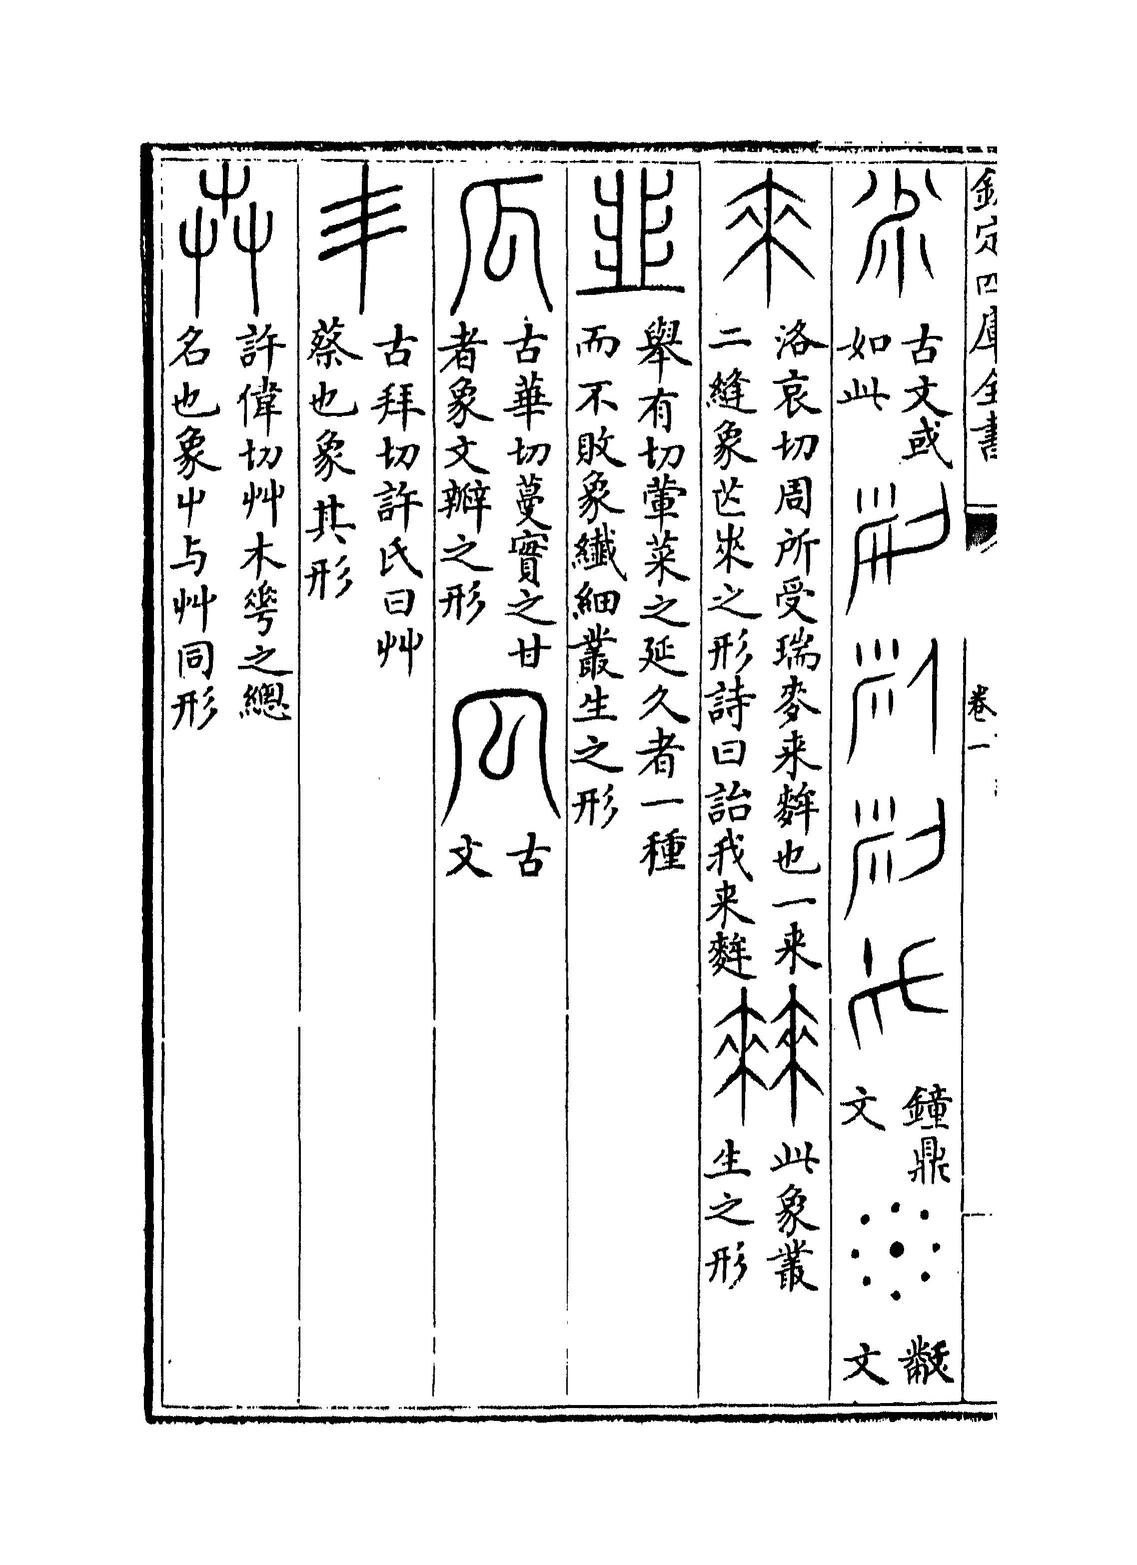 欽定四庫全書
卷一
古文或
如此
鐘鼎
文
文
洛哀切周所受瑞麥来麰也一来
二縫象芒朿之形詩曰詒我来麰
此象叢
生之形
舉有切葷菜之延久者一種
而不敗象纎細叢生之形
古華切蔓實之甘
者象文瓣之形
古
文
古拜切許氏曰艸
蔡也象其形
許偉切艸木𠌶之總
名也象屮与艸同形